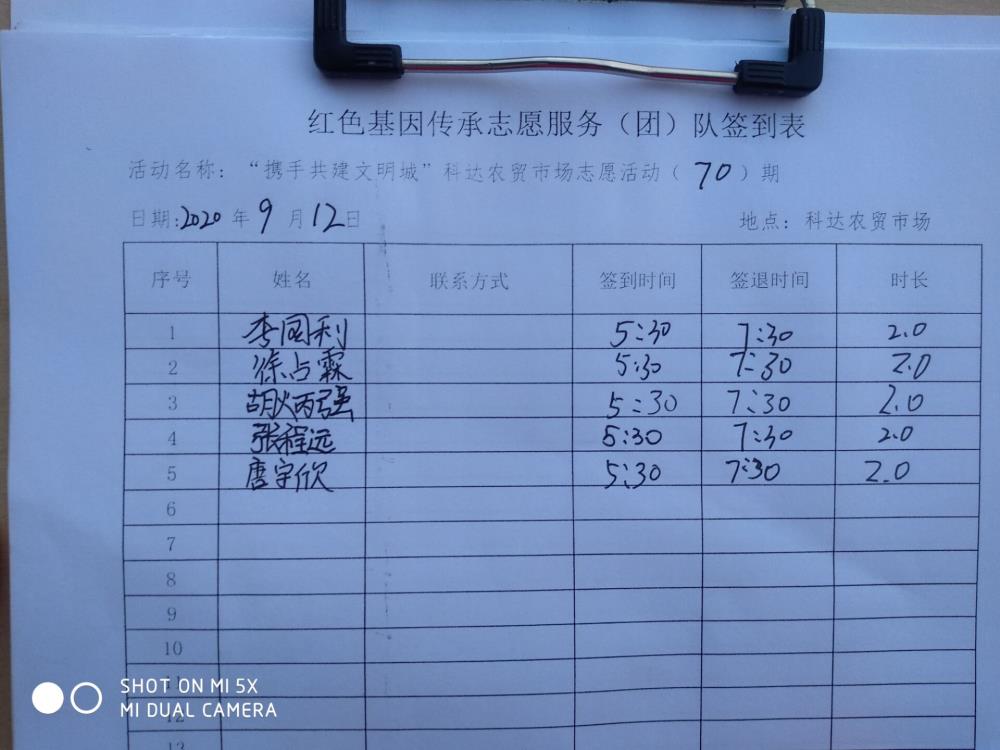 红色基因传承志愿服务（团）队签到表
活动名称：“携手共建文明城”科达农贸市场志愿活动（70）期
日期:2020年9月12日 地点：科达农贸市场
序号 姓名 联系方式 签到时间 签退时间 时长
1 李国利 5:30 7:30 2.0
2 徐占霖 5:30 7:30 2.0
3 胡炳强 5:30 7:30 2.0
4 张程远 5:30 7:30 2.0
5 唐宇欣 5:30 7:30 2.0
6
7
8
9
10
11
12
13
SHOT ON MI 5X
MI DUAL CAMERA